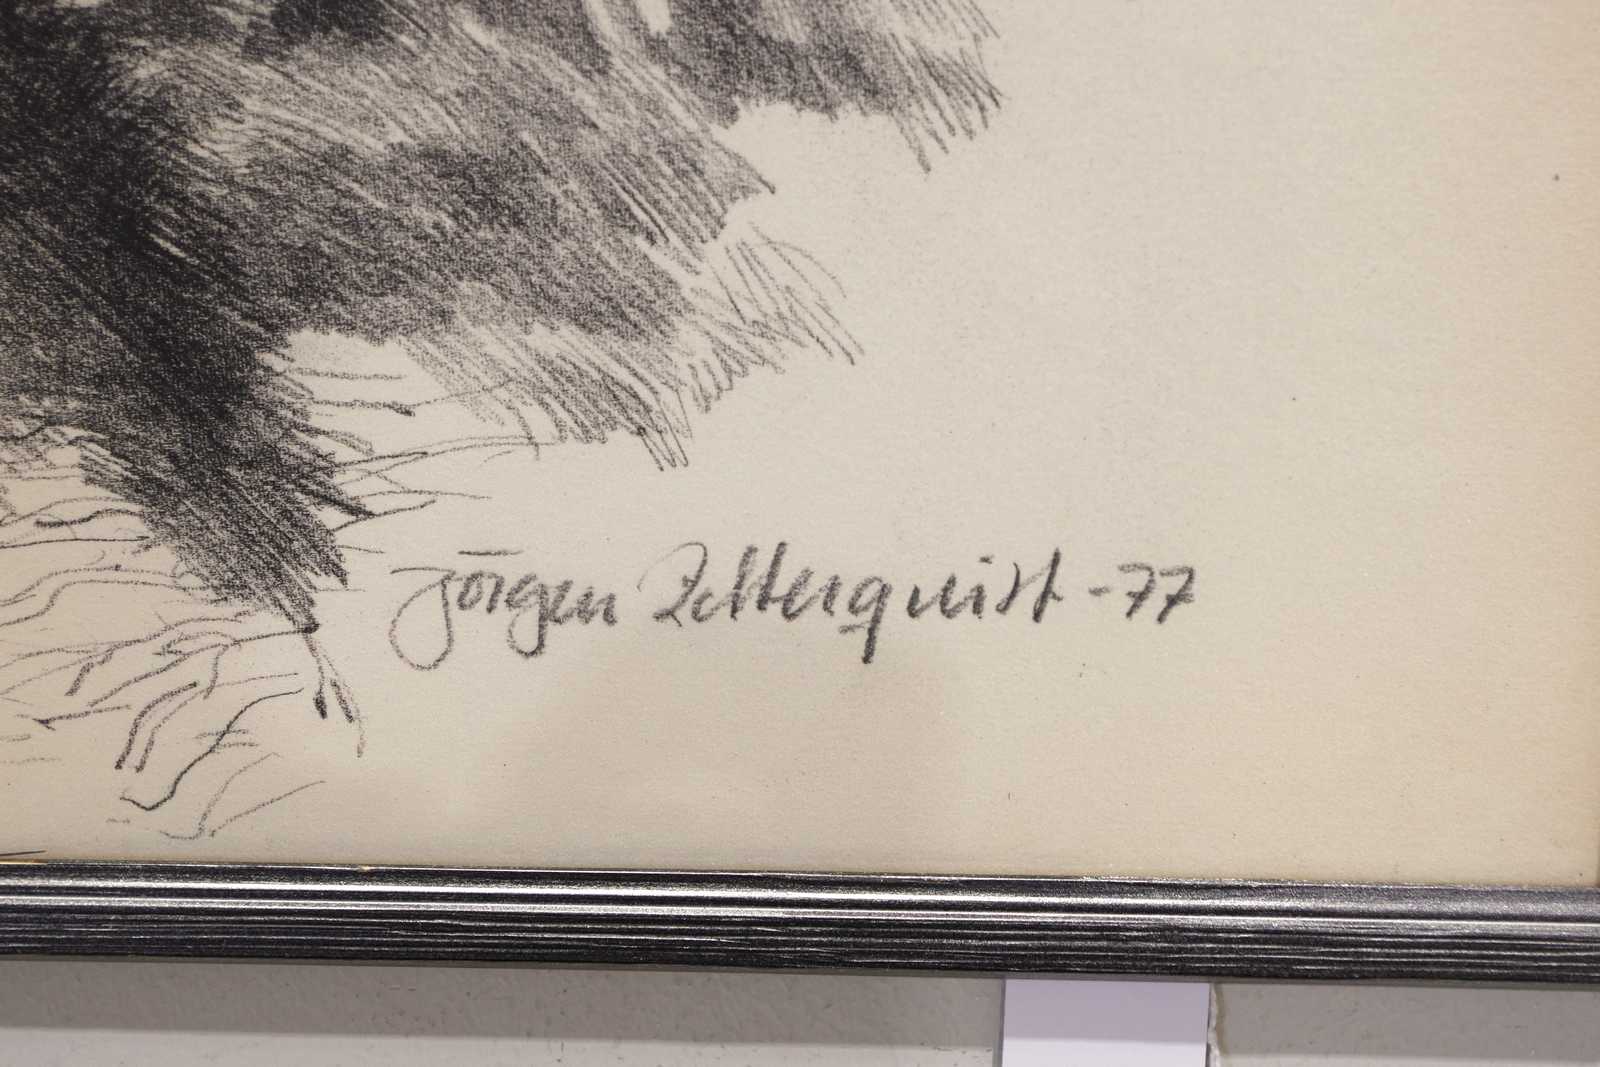 Jörgen Zetterquist -77